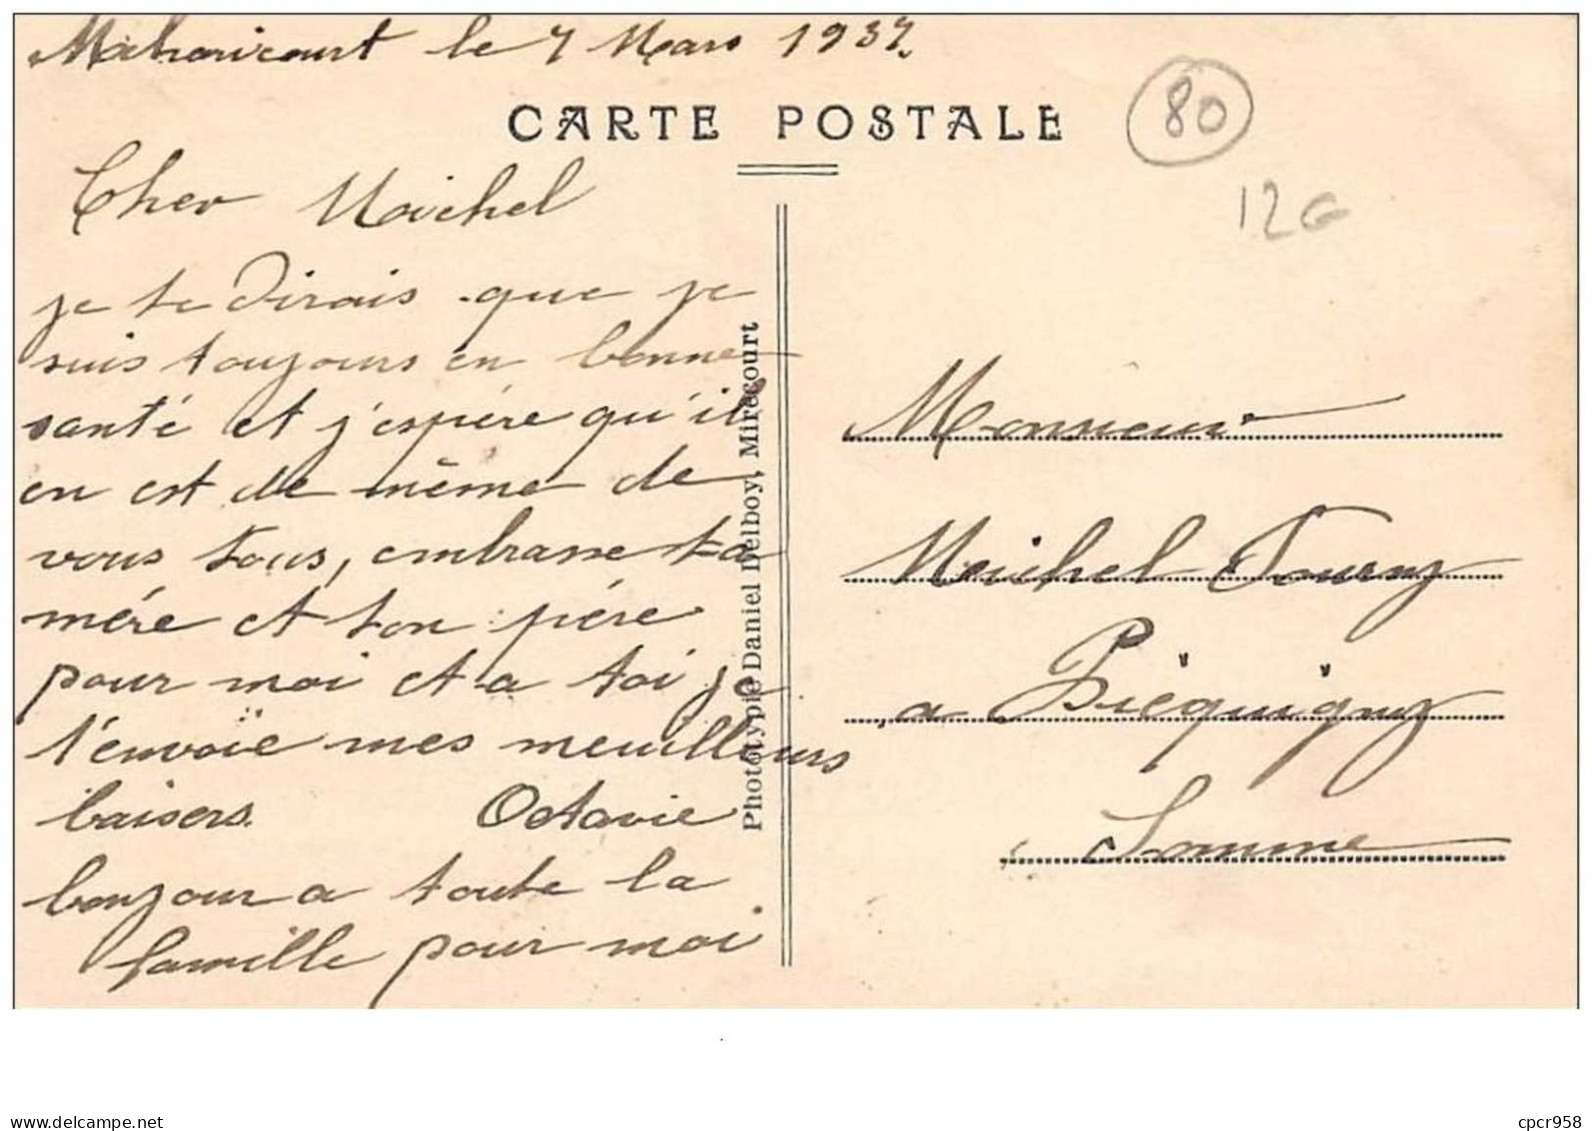 Méharicourt le 7 Mars 1937.
CARTE POSTALE
80
12G
Cher Maichel
je te Dirais que je
suis toujours en bonne
santé et j'espére qu'il
en est de même de
vous tous, embrasse ta
mére et ton pére
pour moi et a toi je
t'envoie mes meuilleurs
baisers. Octavie
bonjour a toute la
famille pour moi
Phototypie Daniel Delboy, Mirecourt
Monsieur
Maichel Tourny
a Picquigny
Somme
www.delcampe.net
cpcr958